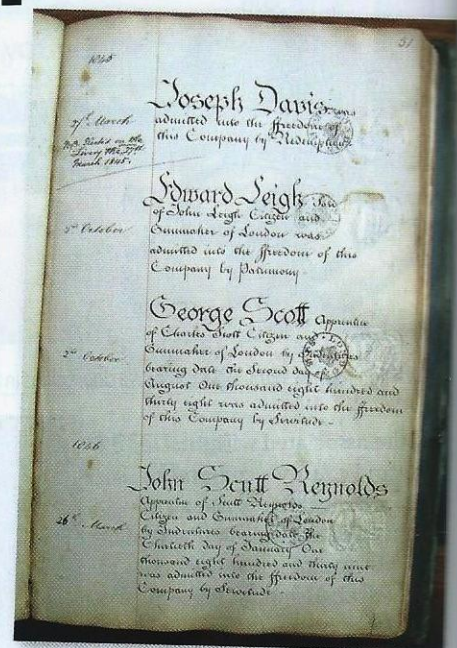 51
1845
Joseph Davis was
27th March
admitted into the ffreedom of
this Company by Redemption
N.B. Elected on the
Livery the 27th
March 1845.
Edward Leigh Son
of John Leigh Citizen and
Gunmaker of London was
October
admitted into the ffreedom of this
Company by Patrimony.
George Scott Apprentice
of Charles Scott Citizen and
Gunmaker of London by Indentures
2nd October
bearing date the Second day of
August One thousand eight hundred and
thirty eight was admitted into the ffreedom
of this Company by Servitude.
1846
John Scutt Reynolds
Apprentice of Scutt Reynolds
Citizen and Gunmaker of London
26th March
by Indentures bearing date the
Thirtieth day of January One
thousand eight hundred and thirty nine
was admitted into the ffreedom of this
Company by Servitude.